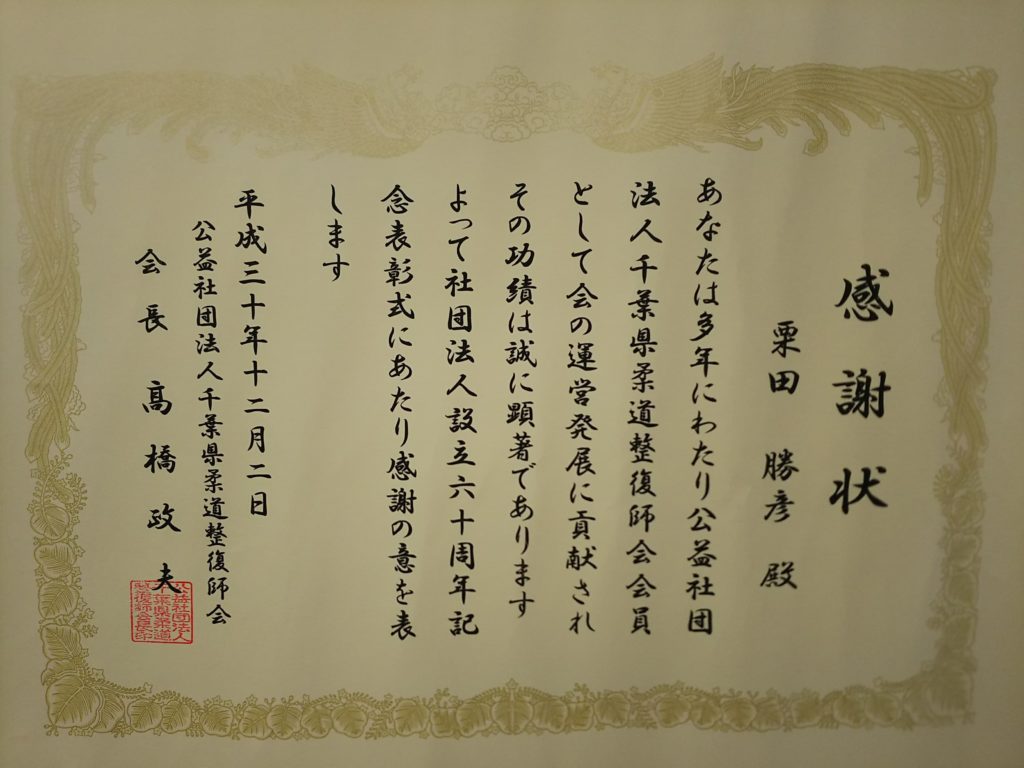 感謝状
栗田 勝彦 殿
あなたは多年にわたり公益社団
法人千葉県柔道整復師会会員
として会の運営発展に貢献され
その功績は誠に顕著であります
よって社団法人設立六十周年記
念表彰式にあたり感謝の意を表
します
平成三十年十二月二日
公益社団法人千葉県柔道整復師会
会長 髙橋政夫
公益社団法人
千葉県柔道
整復師会長印